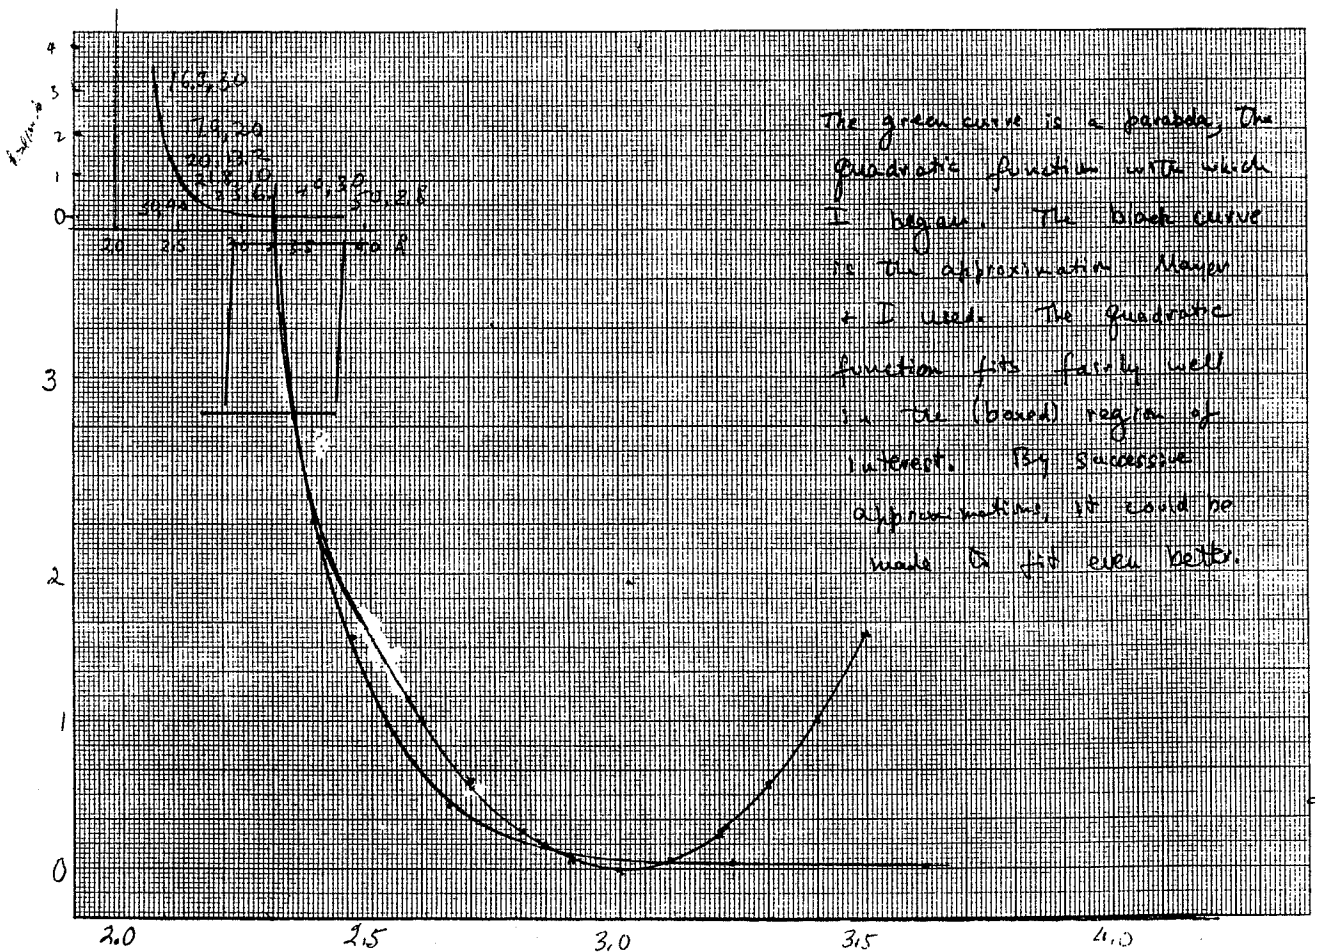 4
3
2
1
0
16.3, 30
17.9, 20
20, 13.2
21.8, 10
2.0 2.5 3.0 3.5 4.0 Å
The green curve is a parabola, the
quadratic function with which
I began. The black curve
is the approximation Mayer
+ I used. The quadratic
function fits fairly well
in the (boxed) region of
interest. By successive
approximations, it could be
made to fit even better.
3
2
1
0
2.0 2.5 3.0 3.5 4.0